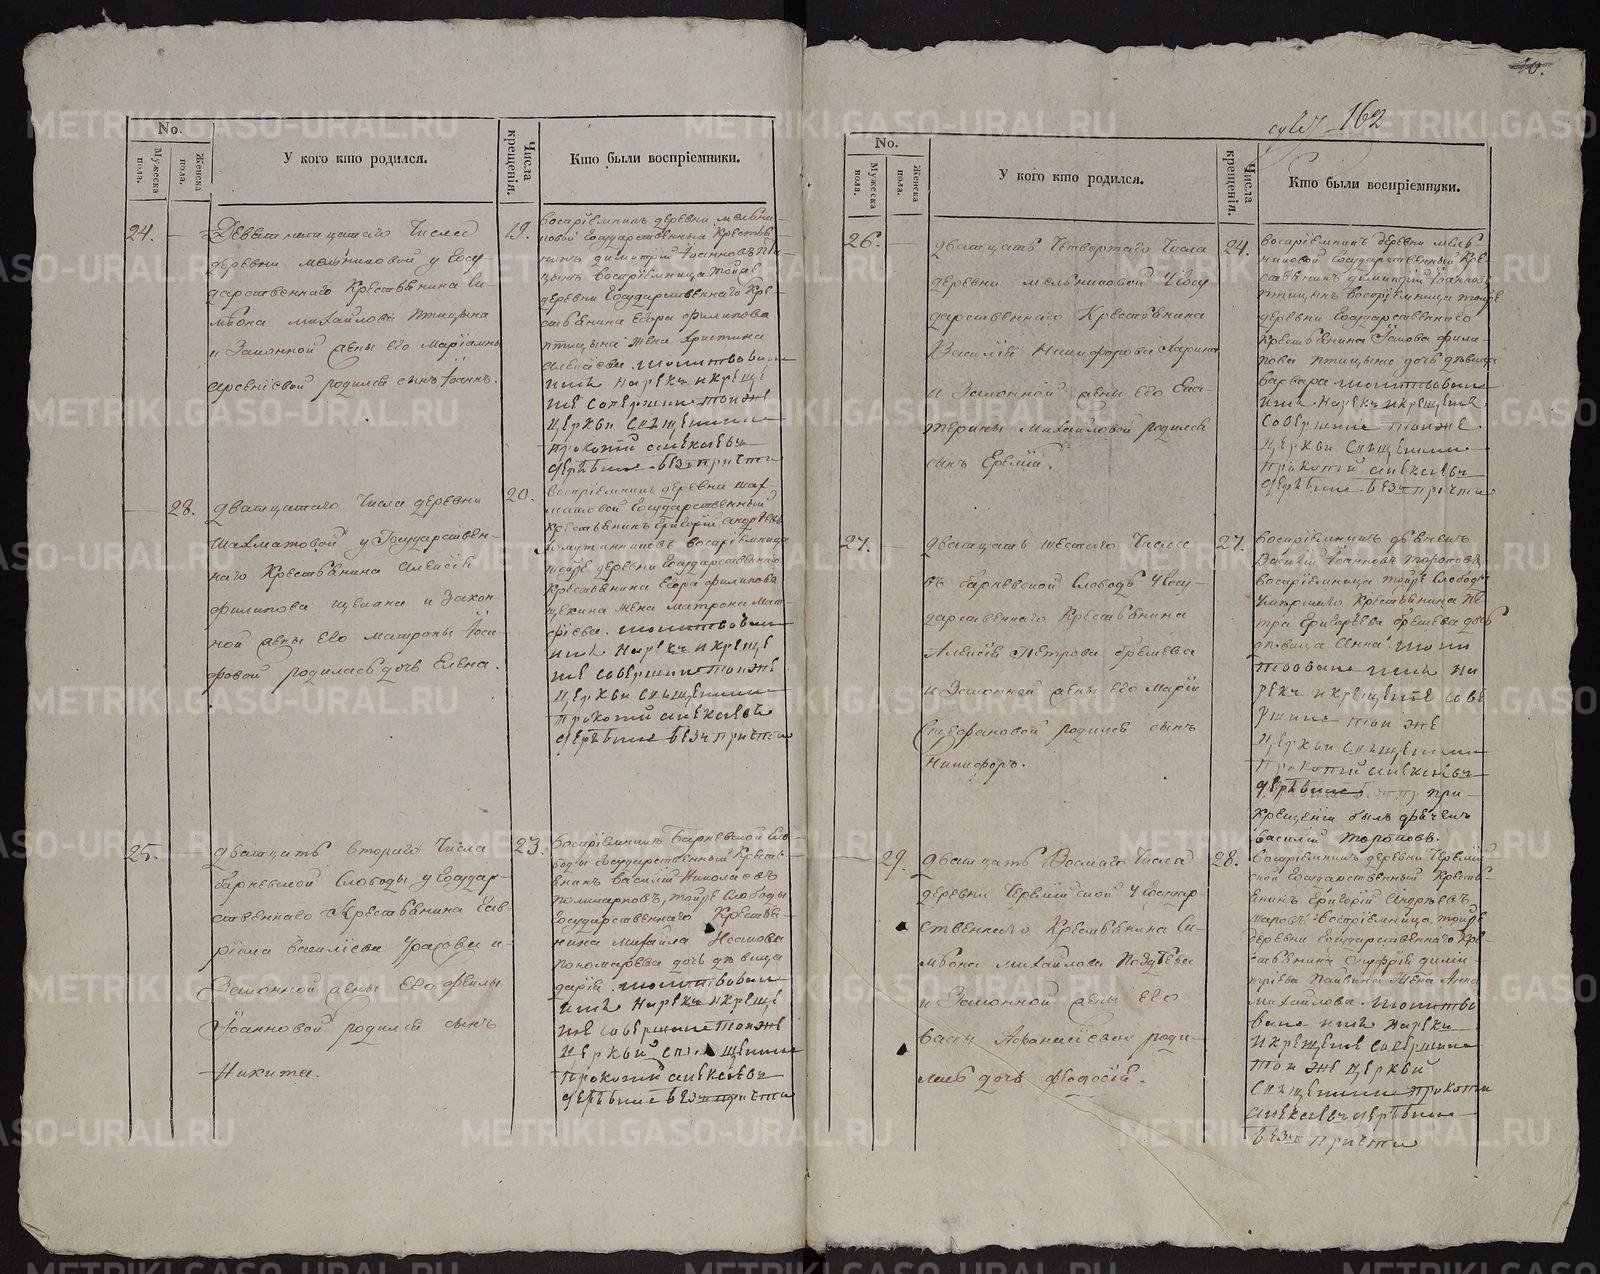 No.
Мужеска пола.
Женска пола.
У кого кто родился.
Числа крещенія.
Кто были воспріемники.
24.
Девятнатцатаго Числа
деревни Мельниковой у Госу-
дарственнаго Крестьянина Си-
мѣона Михайлова Птицына
и Законной жены его Маріамны
Арсеніевой родился сынъ Іоаннъ.
19.
воспріемникъ деревни Мельни-
ковой Государственный Крестья-
нинъ Димитрій Іоанновъ Пти-
цынъ воспріемница тойже
деревни Государственнаго Кре-
стьянина Егора Филипова
Птицына жена Христина
Алексіева. Молитвовалъ
имя нарекъ и креще
ніе совершилъ тоя же
церкви священникъ
Прокопій Алексіевъ
безъ причта
28.
Дватцатаго Числа деревни
Шахматовой у Государствен-
наго Крестьянина Алексіе
Филипова Щекина и Закон-
ной жены его Матроны Іоси-
фовой родилась дочь Елена.
20.
воспріемникъ деревни Шах-
матовой Государственный
Крестьянинъ Григорій Андреевъ
воспріемница
тойже деревни Государственнаго
Крестьянина Егора Филипова
Щекина жена Матрона Мат-
фіева. Молитвовалъ
имя нарекъ и креще
ніе совершилъ тоя же
церкви священникъ
Прокопій Алексіевъ
безъ причта
25.
Дватцать втораго Числа
Барневской Слободы у Государ-
ственнаго Крестьянина Гав-
ріила Василіева
Законной жены его Феклы
Іоанновой родился сынъ
Никита.
23.
воспріемникъ Барневской Сло-
боды Государственный Кресть-
янинъ Василій Николаевъ
Поликарповъ, тойже Слободы
Государственнаго Крестья-
нина Михайла
Пономарева дочь дѣвица
Дарія. Молитвовалъ
имя нарекъ и креще
ніе совершилъ тоя же
церкви священникъ
Прокопій Алексіевъ
безъ причта
162
No.
Мужеска пола.
Женска пола.
У кого кто родился.
Числа крещенія.
Кто были воспріемники.
26.
Дватцать Четвертаго Числа
деревни Мельниковой у Госу
дарственнаго Крестьянина
Василія Никифорова Ларина
и Законной жены его Ека-
терины Михайловой родился
сынъ Еремій.
24.
воспріемникъ деревни Мель-
никовой Государственный Кре-
стьянинъ Димитрій Іоанновъ
Птицынъ воспріемница тойже
деревни Государственнаго
Крестьянина Іакова Фили-
пова Птицына дочь дѣвица
Варвара Молитвовалъ
имя нарекъ и крещеніе
совершилъ тоя же
церкви священникъ
Прокопій Алексіевъ
безъ причта
27.
Дватцать шестаго Числа
въ Барневской Слободѣ у Госу-
дарственнаго Крестьянина
Алексія Петрова Грешева
и Законной жены его Маріи
Стефановой родился сынъ
Никифоръ.
27.
воспріемникъ дьячекъ
Василій Іоанновъ Тороповъ
воспріемница тойже Слободы
умершаго Крестьянина Пе-
тра Григорьева Грешева дочь
дѣвица Анна. Моли
твовалъ имя на
рекъ и крещеніе сове
ршилъ тоя же
церкви священникъ
Прокопій Алексіевъ
при
крещеніи былъ дьячекъ
Василій Тороповъ.
29.
Дватцать Восмаго Числа
деревни Черемисской у Государ
ственнаго Крестьянина Си-
мѣона Михайлова Поздѣева
и Законной жены его
Вассы Афанасіевой роди-
лась дочь Феодосія.
28.
воспріемникъ деревни Черемис-
ской Государственный Кресть-
янинъ Григорій Андреевъ
воспріемница тойже
деревни Государственнаго Кре-
стьянина Онуфрія Дими-
тріева жена Анна
Михайлова. Молитво
валъ имя нарекъ
и крещеніе совершилъ
тоя же церкви
священникъ Прокопій
Алексіевъ
безъ причта